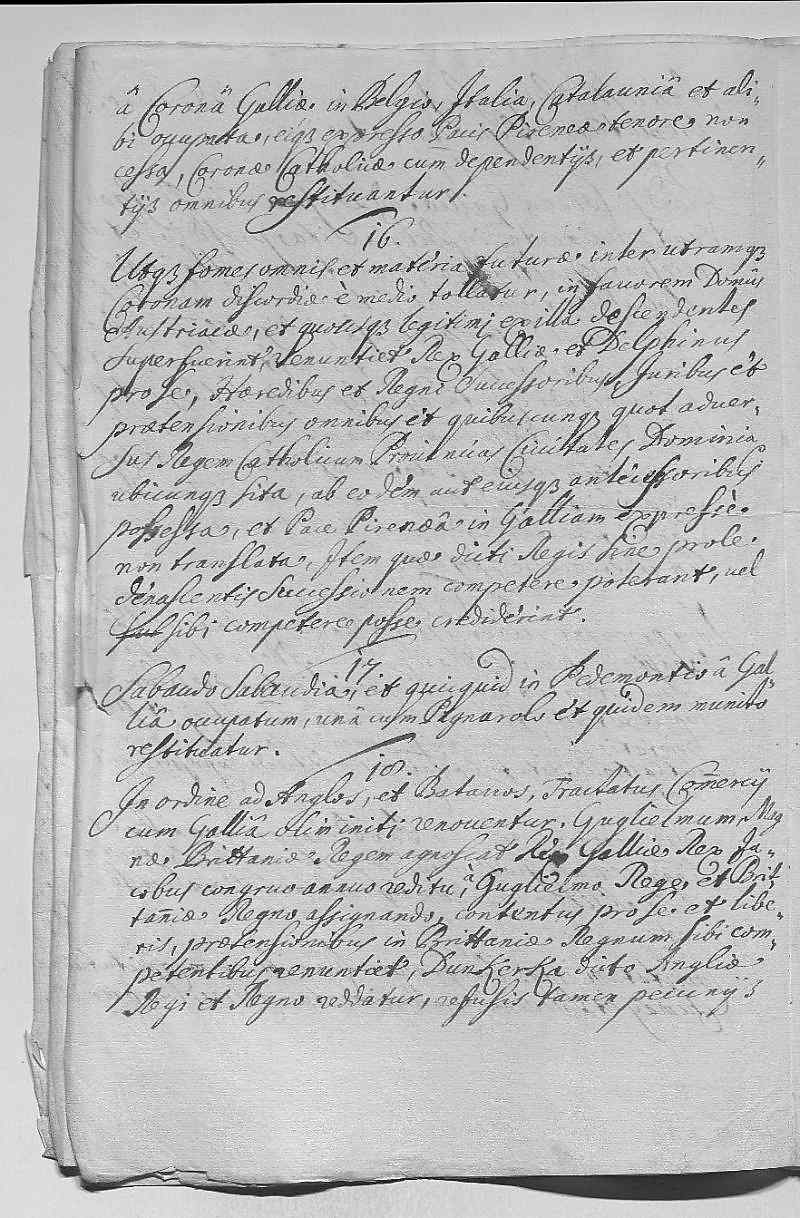 â Coronâ Galliæ in Belgio, Italia, Catalauniâ et ali-
bi occupata, eiqꝫ expresso Pacis Pireneæ tenore non
cessa, Coronæ Catholicæ cum dependentijs, et pertinen-
tijs omnibus restituantur.
16.
Utqꝫ fomes omnis et materia futuræ inter utramqꝫ
Coronam discordiæ è medio tollatur, in favorem Domûs
Austriacæ, et quousqꝫ legitimi ex illa descendentes
superfuerint, renuntiet Rex Galliæ et Delphinus
pro se, Hæredibus et Regni Successoribus, Juribus et
prætensionibus omnibus et quibuscunqꝫ quot adver-
sus Regem Catholicum Provincias, Civitates, Dominia
ubicunqꝫ sita, ab eodem aut eiusqꝫ antecessoribus
possessa, et Pace Pirenæâ in Galliam expressè
non translata, Item quæ dicti Regis sine prole
denascentis successionem competere poterant, vel
sibi competere posse crediderint.
17
Sabaudo Sabaudia, et quicquid in Pedemontio â Gal-
liâ occupatum, unâ cum Pignarolo et quidem munito
restituatur.
18.
In ordine ad Anglos, et Batavos, Tractatus Com̄ercij
cum Galliâ olim initi renoventur. Guglielmum Mag
næ Brittaniæ Regem agnoscat Rex Galliæ. Rex Ja-
cobus congruo annuo reditu, â Guglielmo Rege et Brit-
tan̄iæ Regno assignando, contentus pro se et libe-
ris, prætensionibus in Brittaniæ Regnum sibi com-
petentibus renuntiet, Dunkerka dicto Angliæ
Regi et Regno reddatur, refusis tamen pecunijs